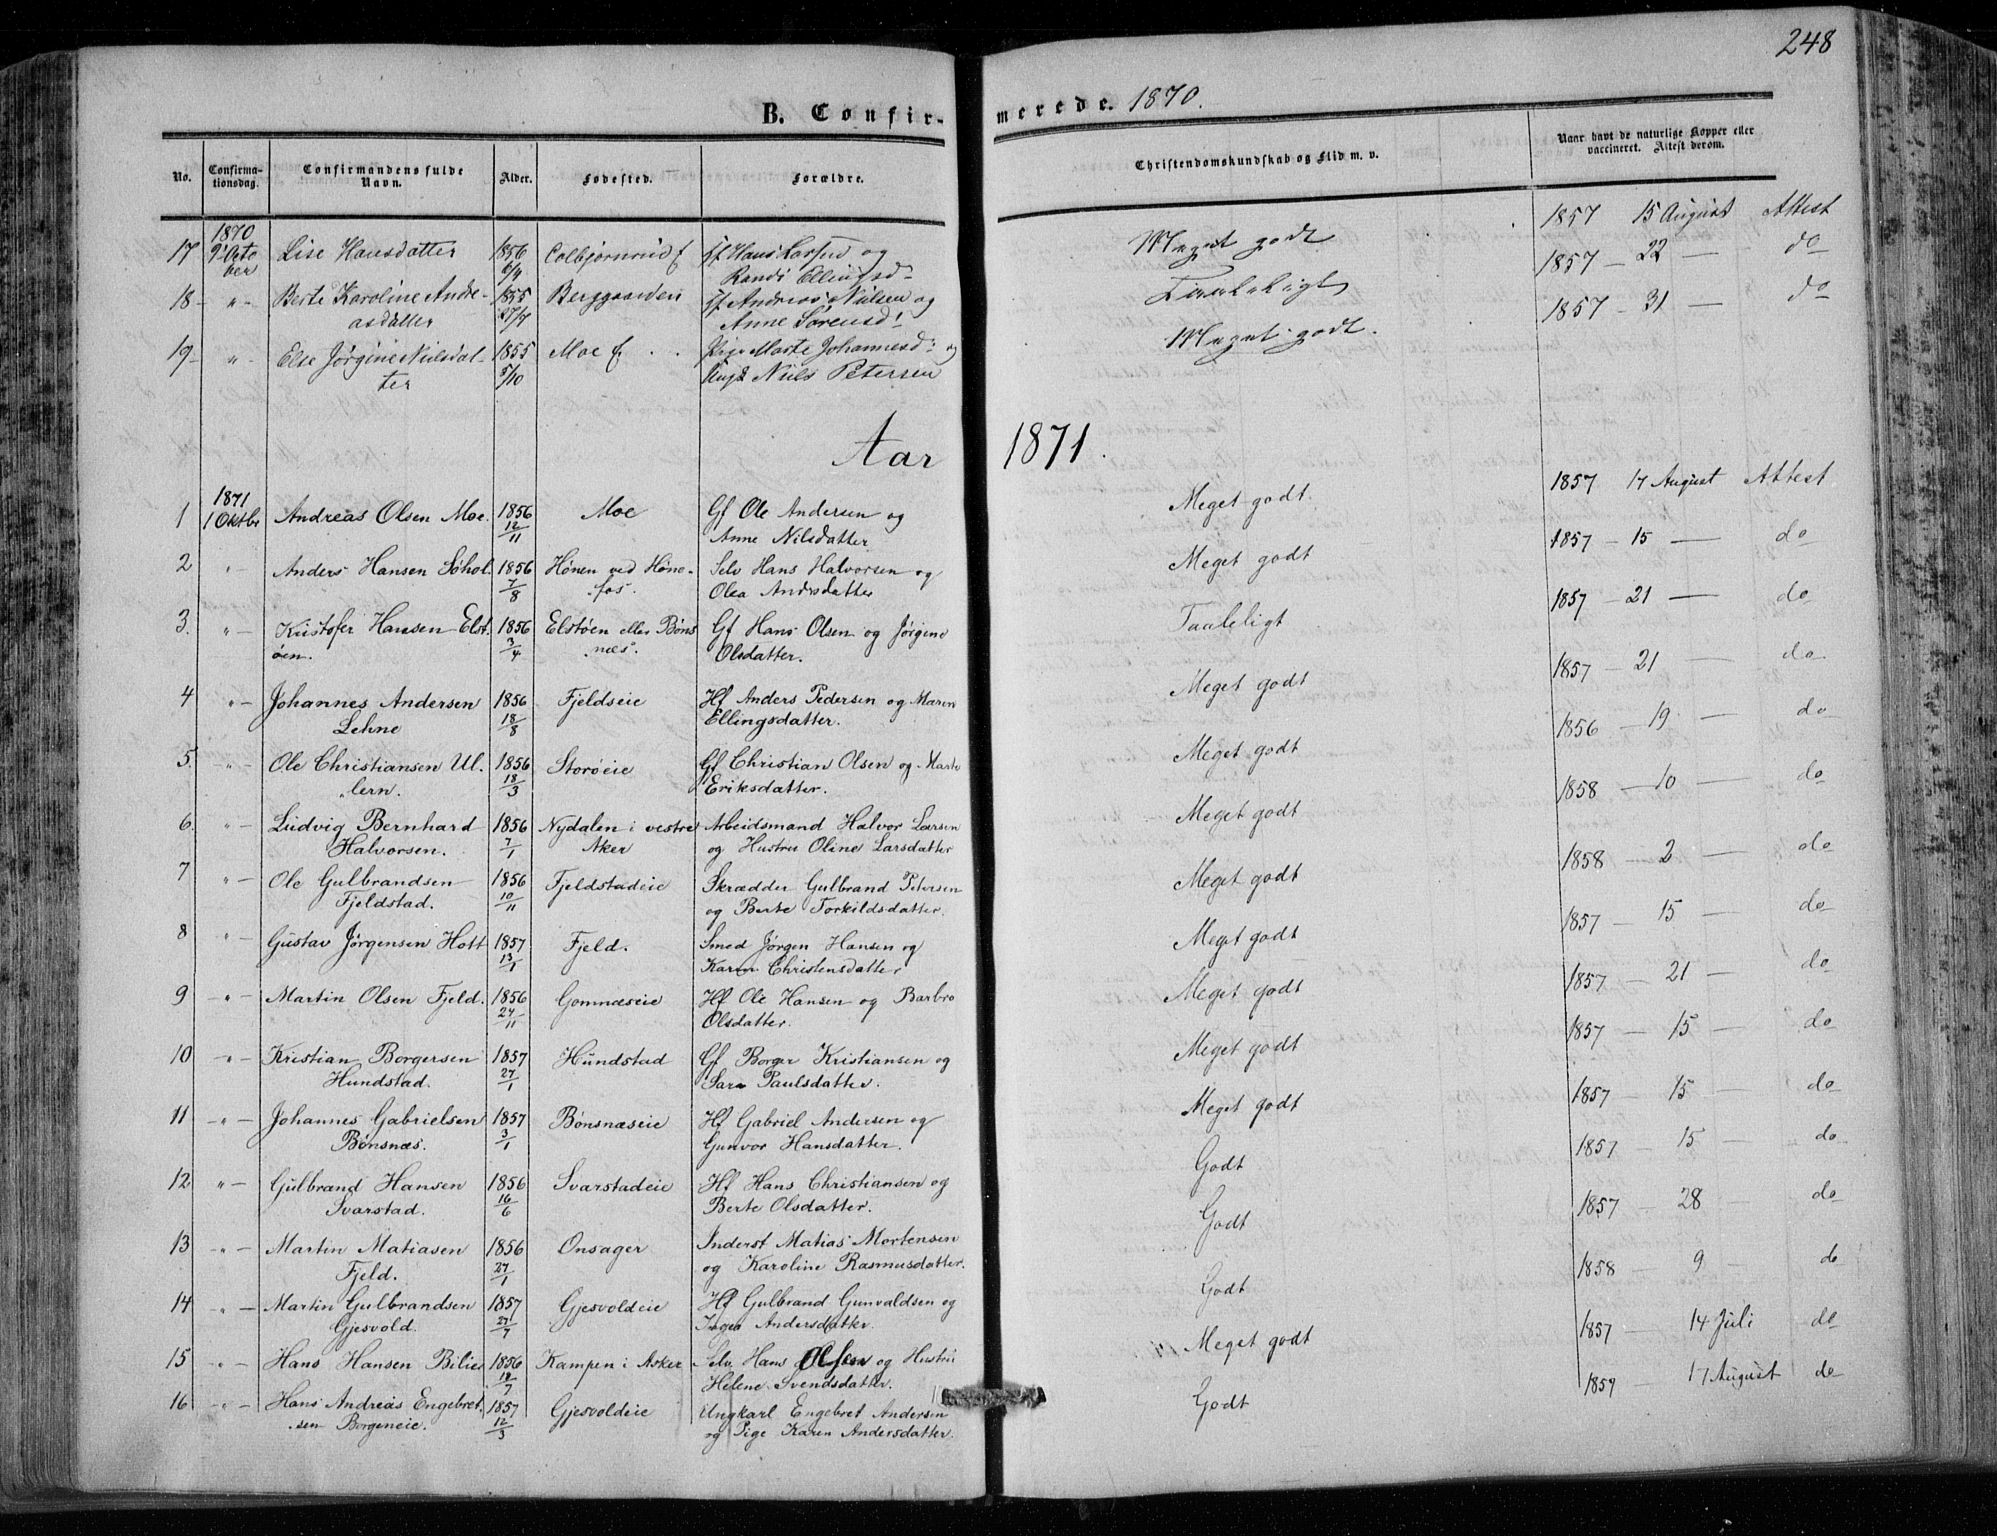 248
B. Confirmerede. 1870.
No. Confirmationsdag. Confirmandens fulde Navn. Alder. Fødested. Forældre. Christendomskundskab og Flid m. v. Naar havt de naturlige Kopper eller vaccineret. Attest derom.
1870
17 9 Octo Lise Hansdatter 1856 Colbjørnrud f Gf Hans Larsen og Meget godt 1857 15 August Attest
ber 6/4 Randi Ellingsd
18 - " - Berte Karoline Andre- 1855 Berggaarden Gf Andreas Nielsen og Taaleligt 1857 - 22 — do
asdatter 27/7 Anne Sørensd:
19 - " Else Jørgine Nielsdat- 1855 Moe f. Pige Marte Johannesd: og Meget godt. 1857 - 31 — do
ter 5/10 Ungk Niels Petersen
Aar 1871.
1871
1 1 Oktbr Andreas Olsen Moe. 1856 Moe Gf Ole Andersen og Meget godt. 1857 17 August Attest
12/11 Anne Nilsdatter
2 " Anders Hansen Søhol 1856 Hønen ved Høne- Selv Hans Halvorsen og Meget godt 1857 - 15 — do
7/8 fos. Olea Andrsdatter
3. " - Kristofer Hansen Elst 1856 Elstøen eller Bøns Gf Hans Olsen og Jørgine Taaleligt 1857 - 21 — do
øen. 3/4 næs. Olsdatter.
4 " - Johannes Andersen 1856 Fjeldseie Hf Anders Pedersen og Maren Meget godt 1857 - 21 — do
Lehne 18/8 Ellingsdatter.
5. - " - Ole Christiansen Ul- 1856 Storøeie Gf Christian Olsen og Marte Meget godt 1856 - 19 — do
lern. 18/3 Eriksdatter.
6. - " - Ludvig Bernhard 1856 Nydalen i vestre Arbeidsmand Halvor Larsen Meget godt 1858 - 10 — do
Halvorsen. 7/1 Aker og Hustru Oline Larsdatter
7 " - Ole Gulbrandsen 1856 Fjeldstadeie Skrædder Gulbrand Petersen Meget godt 1858 - 2 — do
Fjeldstad. 10/11 og Berte Torkildsdatter.
8 " - Gustav Jørgensen Hott 1857 Fjeld. Smed Jørgen Hansen og Meget godt 1857 - 15 — do
13/1 Karen Christensdatter
9 - " - Martin Olsen Fjeld. 1856 Gomnæseie Hf Ole Hansen og Barbro Meget godt 1857 - 21 — do
24/11 Olsdatter.
10 " - Kristian Borgersen 1857 Hundstad Gf Borger Kristiansen og Meget godt 1857 - 15 — do
Hundstad. 27/1 Sara Paulsdatter.
11 - " - Johannes Gabrielsen 1857 Bønsnæseie Hf Gabriel Andersen og Meget godt 1857 - 15 — do
Bønsnæs. 3/1 Gunvor Hansdatter.
12 " - Gulbrand Hansen 1856 Svarstadeie Hf Hans Christiansen og Godt 1857 - 15 — do
Svarstad. 16/6 Berte Olsdatter.
13 - " - Martin Matiasen 1856 Onsager Inderst Matias Mortensen Godt 1857 - 28 — do
Fjeld. 27/1 og Karoline Rasmusdatter.
14 - " - Martin Gulbrandsen 1857 Gjesvoldeie Hf Gulbrand Gunvaldsen og Godt 1858 - 9 - do
Gjesvold. Andersdatter.
15 - " - Hans Hansen Bilie 1856 Kampen i Asker Selv Hans Olsen og Hustru Meget godt 1857 - 14 Juli do
Helene Svendsdatter.
16 - " - Hans Andreas Engebret 1857 Gjesvoldeie Ungkarl Engebret Andersen Godt 17 August do
sen Borgeneie. 12/3 og Pige Karen Andersdatter.